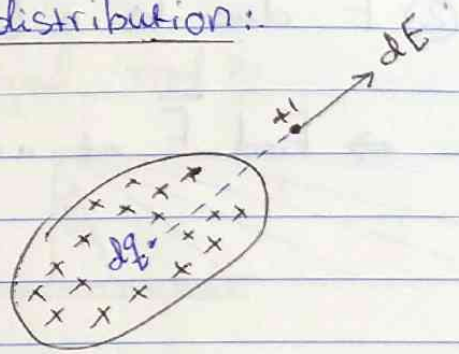 distribution:.
dE
+1
dq